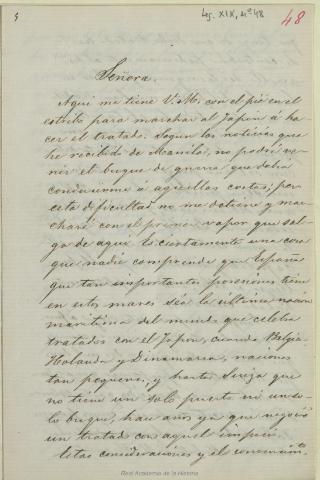 Leg. XIX, nº 48
48
Señora
Aqui me tiene V. M. con el pié en el
estribo para marchar al Japon á ha-
cer el tratado. Segun las noticias que
he recibido de Manila, no podrá ve-
nir el buque de guerra que debia
conducirme á aquellas costas; pero
esta dificultad no me detiene y mar-
charé con el primer vapor que sal-
ga de aqui. Es ciertamente una cosa
que nadie comprende que España
que tan importantes posesiones tiene
en estos mares sea la ultima nacion
maritima del mundo que celebra
tratados con el Japon, cuando Belgica
Holanda y Dinamarca, naciones
tan pequeñas, y hasta Suiza que
no tiene un solo puerto ni un so-
lo buque, hace años ya que negoció
un tratado con aquel imperio.
Estas consideraciones y el
Real Academia de la Historia